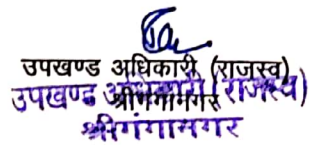 उपखण्ड अधिकारी (राजस्व)
उपखण्ड अधिकारी (राजस्व)
श्रीगंगानगर
श्रीगंगानगर